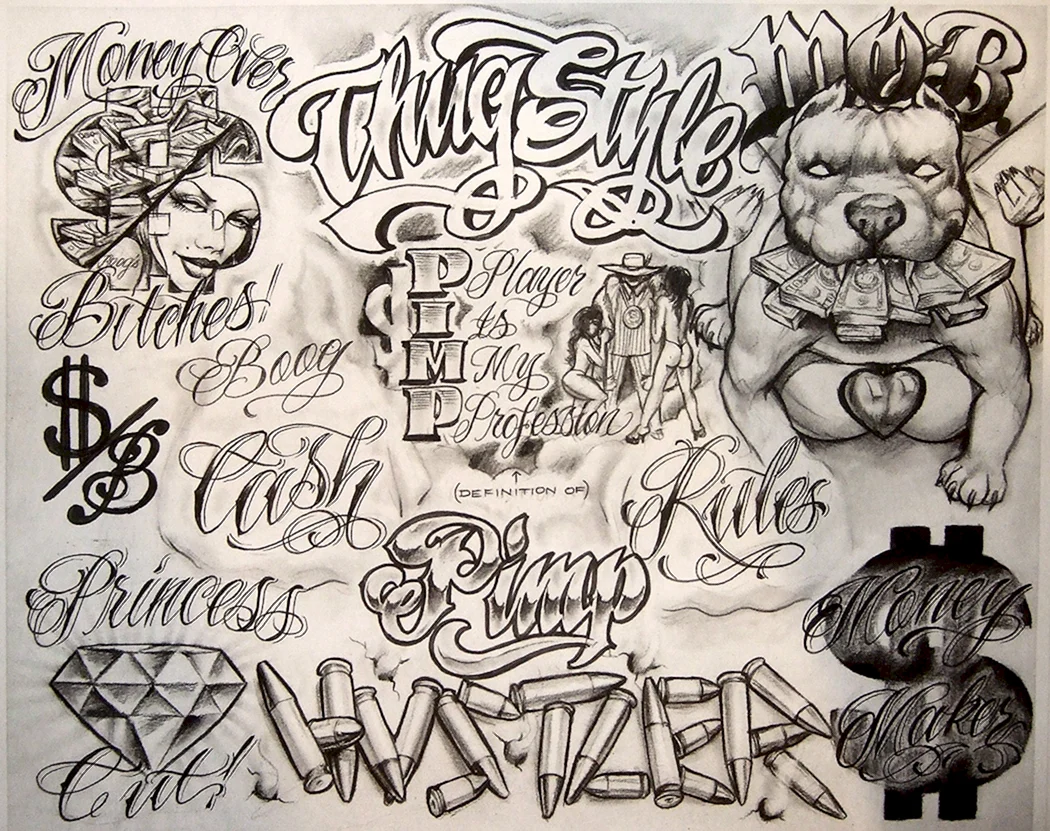 Money Over
Bitches!
Boog's
Thug Style
MOB
Player
Is
My
Profession
Boog
$/B
Cash
(DEFINITION OF)
Rules
Pimp
Princess
Cut!
HUSTLER
Money
Makes